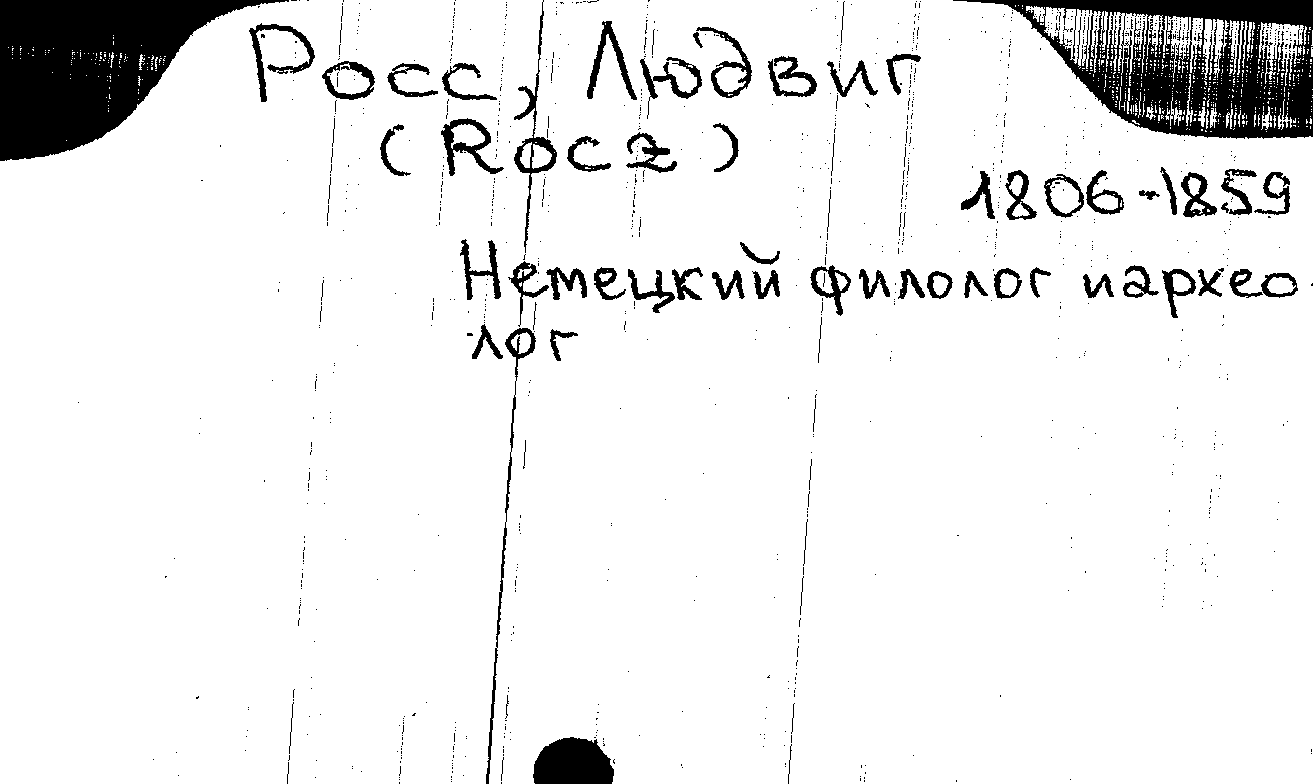 Росс, Людвиг
(Rocz)
1806-1859
Немецкий филолог и архео-
лог